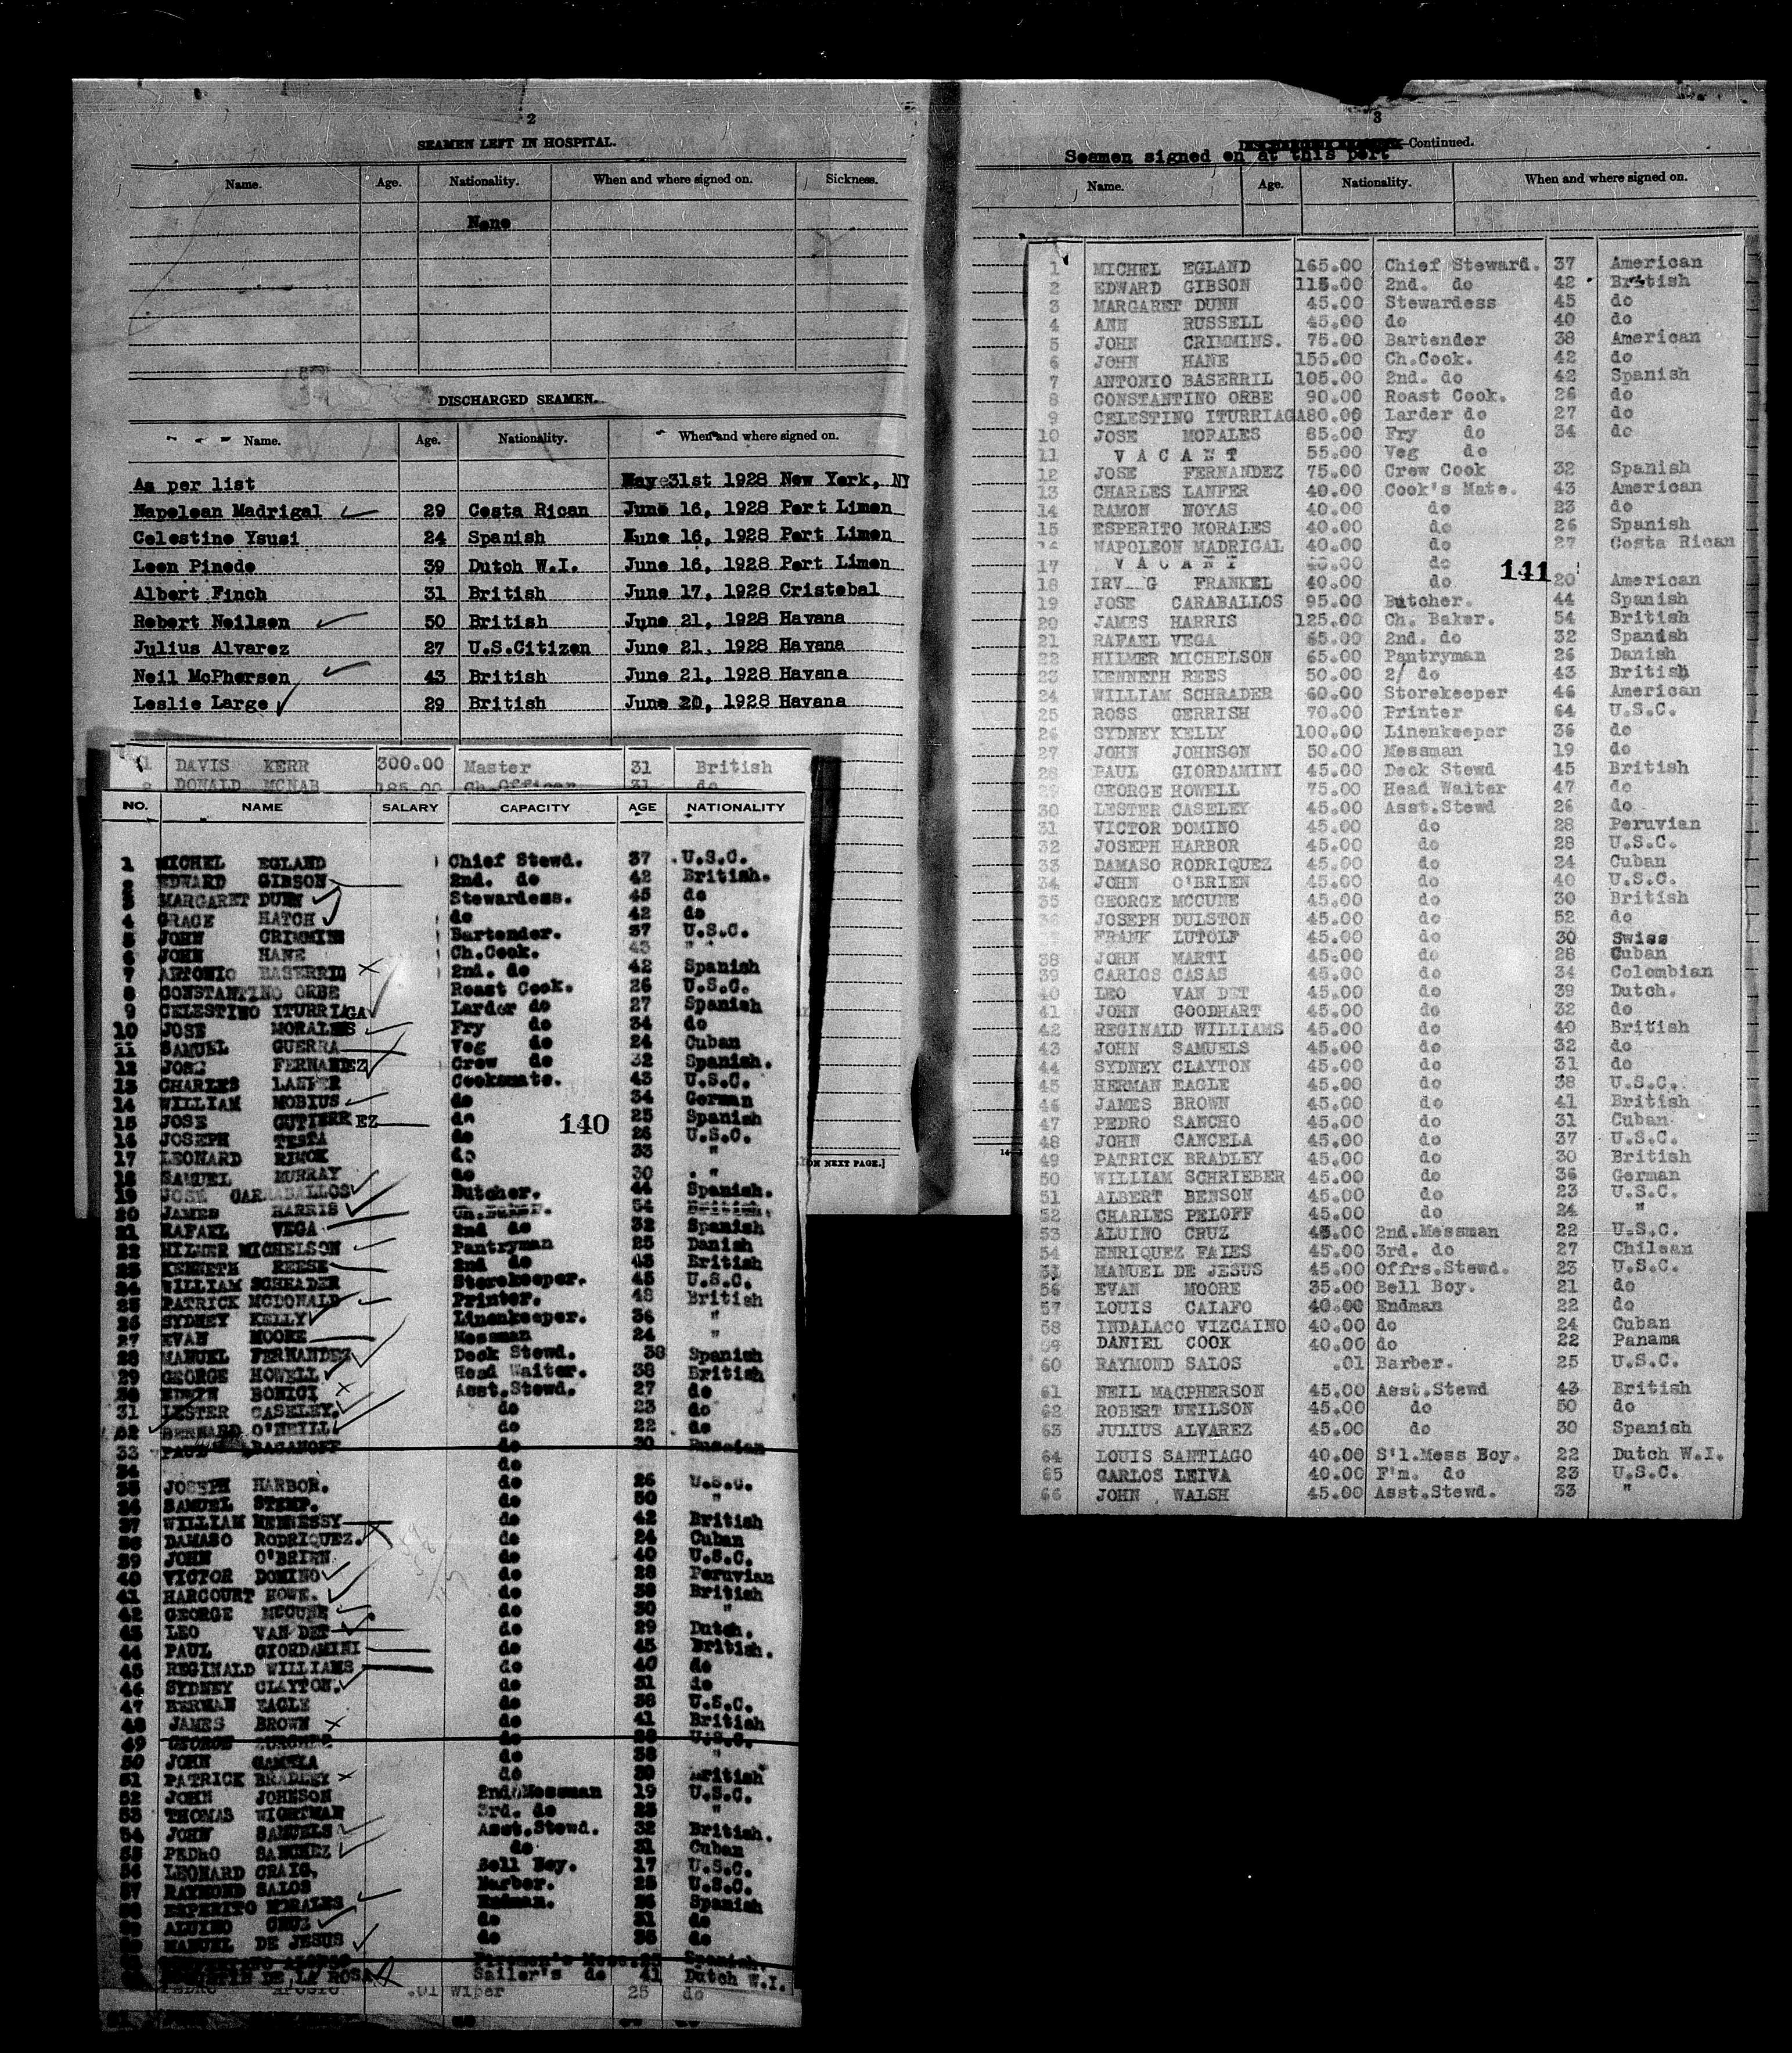 2
SEAMEN LEFT IN HOSPITAL.
Name. Age. Nationality. When and where signed on. Sickness.
None
DISCHARGED SEAMEN.
Name. Age. Nationality. When and where signed on.
As per list 31st 1928 New York, NY
Napolean Madrigal 29 Costa Rican June 16, 1928 Port Limon
Celestino Ysusi 24 Spanish June 16, 1928 Port Limon
Leon Pinedo 39 Dutch W.I. June 16, 1928 Port Limon
Albert Finch 31 British June 17, 1928 Cristobal
Robert Neilson 50 British June 21, 1928 Havana
Julius Alvarez 27 U.S.Citizen June 21, 1928 Havana
Neil McPherson 43 British June 21, 1928 Havana
Leslie Large 29 British June 20, 1928 Havana
1 DAVIS KERR 300.00 Master 31 British
DONALD MCNAB 185.00 Ch.Officer 31 do
NO. NAME SALARY CAPACITY AGE NATIONALITY
1 MICHEL EGLAND Chief Stewd. 37 U.S.C.
2 EDWARD GIBSON 2nd. do 42 British.
3 MARGARET DUNN Stewardess. 45 do
4 GRACE HATCH do 42 do
5 JOHN CRIMMINS Bartender. 37 U.S.C.
6 JOHN HANE Ch.Cook. 43 " "
7 ANTONIO BASERRIL 2nd. do 42 Spanish
8 CONSTANTINO ORBE Roast Cook. 26 U.S.C.
9 CELESTINO ITURRIAGA Larder do 27 Spanish
10 JOSE MORALES Fry do 34 do
11 SAMUEL GUERRA Veg do 24 Cuban
12 JOSE FERNANDEZ Crew do 32 Spanish.
13 CHARLES LANFER Cooksmate. 43 U.S.C.
14 WILLIAM MOBIUS do 34 German
15 JOSE GUTIERREZ do 25 Spanish
16 JOSEPH TESTA do 26 U.S.C.
17 LEONARD do 33 "
18 SAMUEL MURRAY do 30 "
19 JOSE CARABALLOS Butcher. 44 Spanish.
20 JAMES HARRIS Ch.Baker. 54 British.
21 RAFAEL VEGA 2nd do 32 Spanish
22 HILMER MICHELSON Pantryman 25 Danish
23 KENNETH REESE 2nd do 43 British
24 WILLIAM SCHRADER Storekeeper. 45 U.S.C.
25 PATRICK MCDONALD Printer. 48 British
26 SYDNEY KELLY Linenkeeper. 36 "
27 EVAN MOORE Messman 24 "
28 MANUEL FERNANDEZ Deck Stewd. 38 Spanish
29 GEORGE HOWELL Head Waiter. 38 British
30 EDWIN BONICI Asst.Stewd. 27 do
31 LESTER CASELEY. do 23 do
32 BERNARD O'NEILL do 22 do
33 PAUL do 30 Russian
34 do
35 JOSEPH HARBOR. do 26 U.S.C.
36 SAMUEL STEMP. do 50 "
37 WILLIAM HENNESSY do 42 British
38 DAMASO RODRIQUEZ. do 24 Cuban
39 JOHN O'BRIEN do 40 U.S.C.
40 VICTOR DOMINO do 28 Peruvian
41 HARCOURT HOWE. do 38 British
42 GEORGE MCCUNE do 30 "
43 LEO VAN DET do 29 Dutch.
44 PAUL GIORDAMINI do 45 British.
45 REGINALD WILLIAMS do 40 do
46 SYDNEY CLAYTON. do 31 do
47 HERMAN EAGLE do 38 U.S.C.
48 JAMES BROWN do 41 British
49 GEORGE do 28 U.S.C.
50 JOHN do 38 "
51 PATRICK BRADLEY do 30 British
52 JOHN JOHNSON 2nd Messman 19 U.S.C.
53 THOMAS WIGHTMAN 3rd. do 23 "
54 JOHN SAMUELS Asst.Stewd. 32 British.
55 PEDRO SANCHEZ do 31 Cuban
56 LEONARD CRAIG, Bell Boy. 17 U.S.C.
57 RAYMOND SALOS Barber. 25 U.S.C.
58 ESPERITO MORALES Endman. 26 Spanish
59 ALUINO CRUZ do 21 do
60 MANUEL DE JESUS do 25 do
Spanish.
DE LA ROSA Sailer's do 41 Dutch W.I.
PEDRO .01 Wiper 25 do
140
ON NEXT PAGE.]
3
Continued.
Seamen signed on at this port
Name. Age. Nationality. When and where signed on.
1 MICHEL EGLAND 165.00 Chief Steward. 37 American
2 EDWARD GIBSON 115.00 2nd. do 42 British
3 MARGARET DUNN 45.00 Stewardess 45 do
4 ANN RUSSELL 45.00 do 40 do
5 JOHN CRIMMINS. 75.00 Bartender 38 American
6 JOHN HANE 155.00 Ch.Cook. 42 do
7 ANTONIO BASERRIL 105.00 2nd. do 42 Spanish
8 CONSTANTINO ORBE 90.00 Roast Cook. 26 do
9 CELESTINO ITURRIAGA 80.00 Larder do 27 do
10 JOSE MORALES 85.00 Fry do 34 do
11 V A C A N T 55.00 Veg do
12 JOSE FERNANDEZ 75.00 Crew Cook 32 Spanish
13 CHARLES LANFER 40.00 Cook's Mate. 43 American
14 RAMON NOYAS 40.00 do 23 do
15 ESPERITO MORALES 40.00 do 26 Spanish
16 NAPOLEON MADRIGAL 40.00 do 27 Costa Rican
17 V A C A N T 40.00 do
141
18 IRV G FRANKEL 40.00 do 20 American
19 JOSE CARABALLOS 95.00 Butcher. 44 Spanish
20 JAMES HARRIS 125.00 Ch. Baker. 54 British
21 RAFAEL VEGA 65.00 2nd. do 32 Spanish
22 HILMER MICHELSON 65.00 Pantryman 26 Danish
23 KENNETH REES 50.00 2/ do 43 British
24 WILLIAM SCHRADER 60.00 Storekeeper 46 American
25 ROSS GERRISH 70.00 Printer 64 U.S.C.
26 SYDNEY KELLY 100.00 Linenkeeper 36 do
27 JOHN JOHNSON 50.00 Messman 19 do
28 PAUL GIORDAMINI 45.00 Deck Stewd 45 British
29 GEORGE HOWELL 75.00 Head Waiter 47 do
30 LESTER CASELEY 45.00 Asst.Stewd 26 do
31 VICTOR DOMINO 45.00 do 28 Peruvian
32 JOSEPH HARBOR 45.00 do 28 U.S.C.
33 DAMASO RODRIQUEZ 45.00 do 24 Cuban
34 JOHN O'BRIEN 45.00 do 40 U.S.C.
35 GEORGE MCCUNE 45.00 do 30 British
36 JOSEPH DULSTON 45.00 do 52 do
37 FRANK LUTOLF 45.00 do 30 Swiss
38 JOHN MARTI 45.00 do 28 Cuban
39 CARLOS CASAS 45.00 do 34 Colombian
40 LEO VAN DET 45.00 do 39 Dutch.
41 JOHN GOODHART 45.00 do 32 do
42 REGINALD WILLIAMS 45.00 do 40 British
43 JOHN SAMUELS 45.00 do 32 do
44 SYDNEY CLAYTON 45.00 do 31 do
45 HERMAN EAGLE 45.00 do 38 U.S.C.
46 JAMES BROWN 45.00 do 41 British
47 PEDRO SANCHO 45.00 do 31 Cuban
48 JOHN CANCELA 45.00 do 37 U.S.C.
49 PATRICK BRADLEY 45.00 do 30 British
50 WILLIAM SCHRIEBER 45.00 do 36 German
51 ALBERT BENSON 45.00 do 23 U.S.C.
52 CHARLES PELOFF 45.00 do 24 "
53 ALUINO CRUZ 45.00 2nd.Messman 22 U.S.C.
54 ENRIQUEZ FALES 45.00 3rd. do 27 Chilean
55 MANUEL DE JESUS 45.00 Offrs.Stewd. 23 U.S.C.
56 EVAN MOORE 35.00 Bell Boy. 21 do
57 LOUIS CAIAFO 40.00 Endman 22 do
58 INDALACO VIZCAINO 40.00 do 24 Cuban
59 DANIEL COOK 40.00 do 22 Panama
60 RAYMOND SALOS .01 Barber. 25 U.S.C.
61 NEIL MACPHERSON 45.00 Asst.Stewd 43 British
62 ROBERT NEILSON 45.00 do 50 do
63 JULIUS ALVAREZ 45.00 do 30 Spanish
64 LOUIS SANTIAGO 40.00 S'l.Mess Boy. 22 Dutch W.I.
65 CARLOS LEIVA 40.00 F'm. do 23 U.S.C.
66 JOHN WALSH 45.00 Asst.Stewd. 33 "